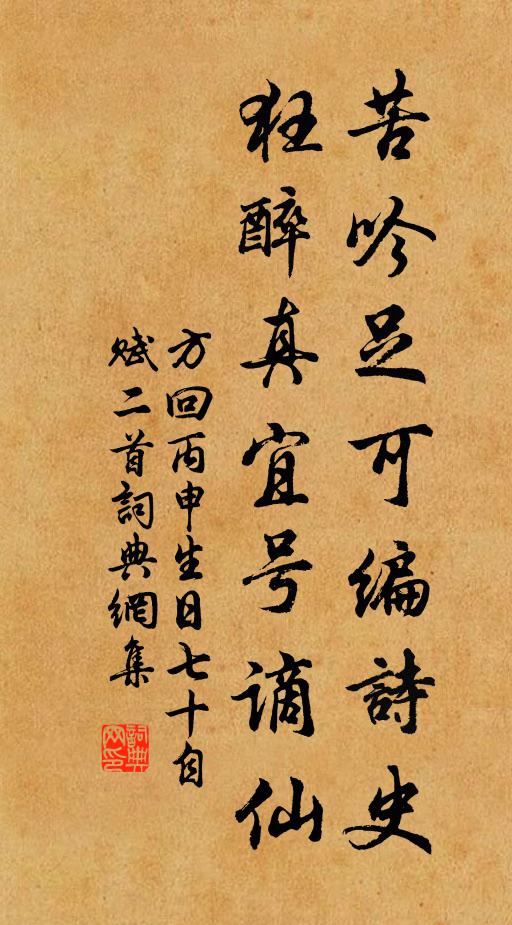 苦吟足可编詩史
狂醉真宜号謫仙
方回丙申生日七十自
赋二首詞典網集
詞典
网印